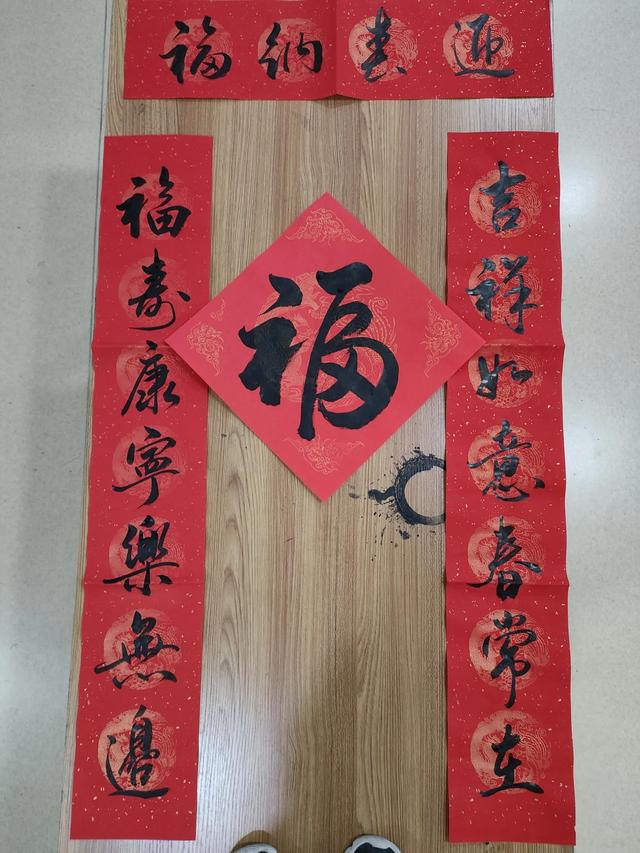 迎春纳福
吉祥如意春常在
福
福寿康宁樂無邊